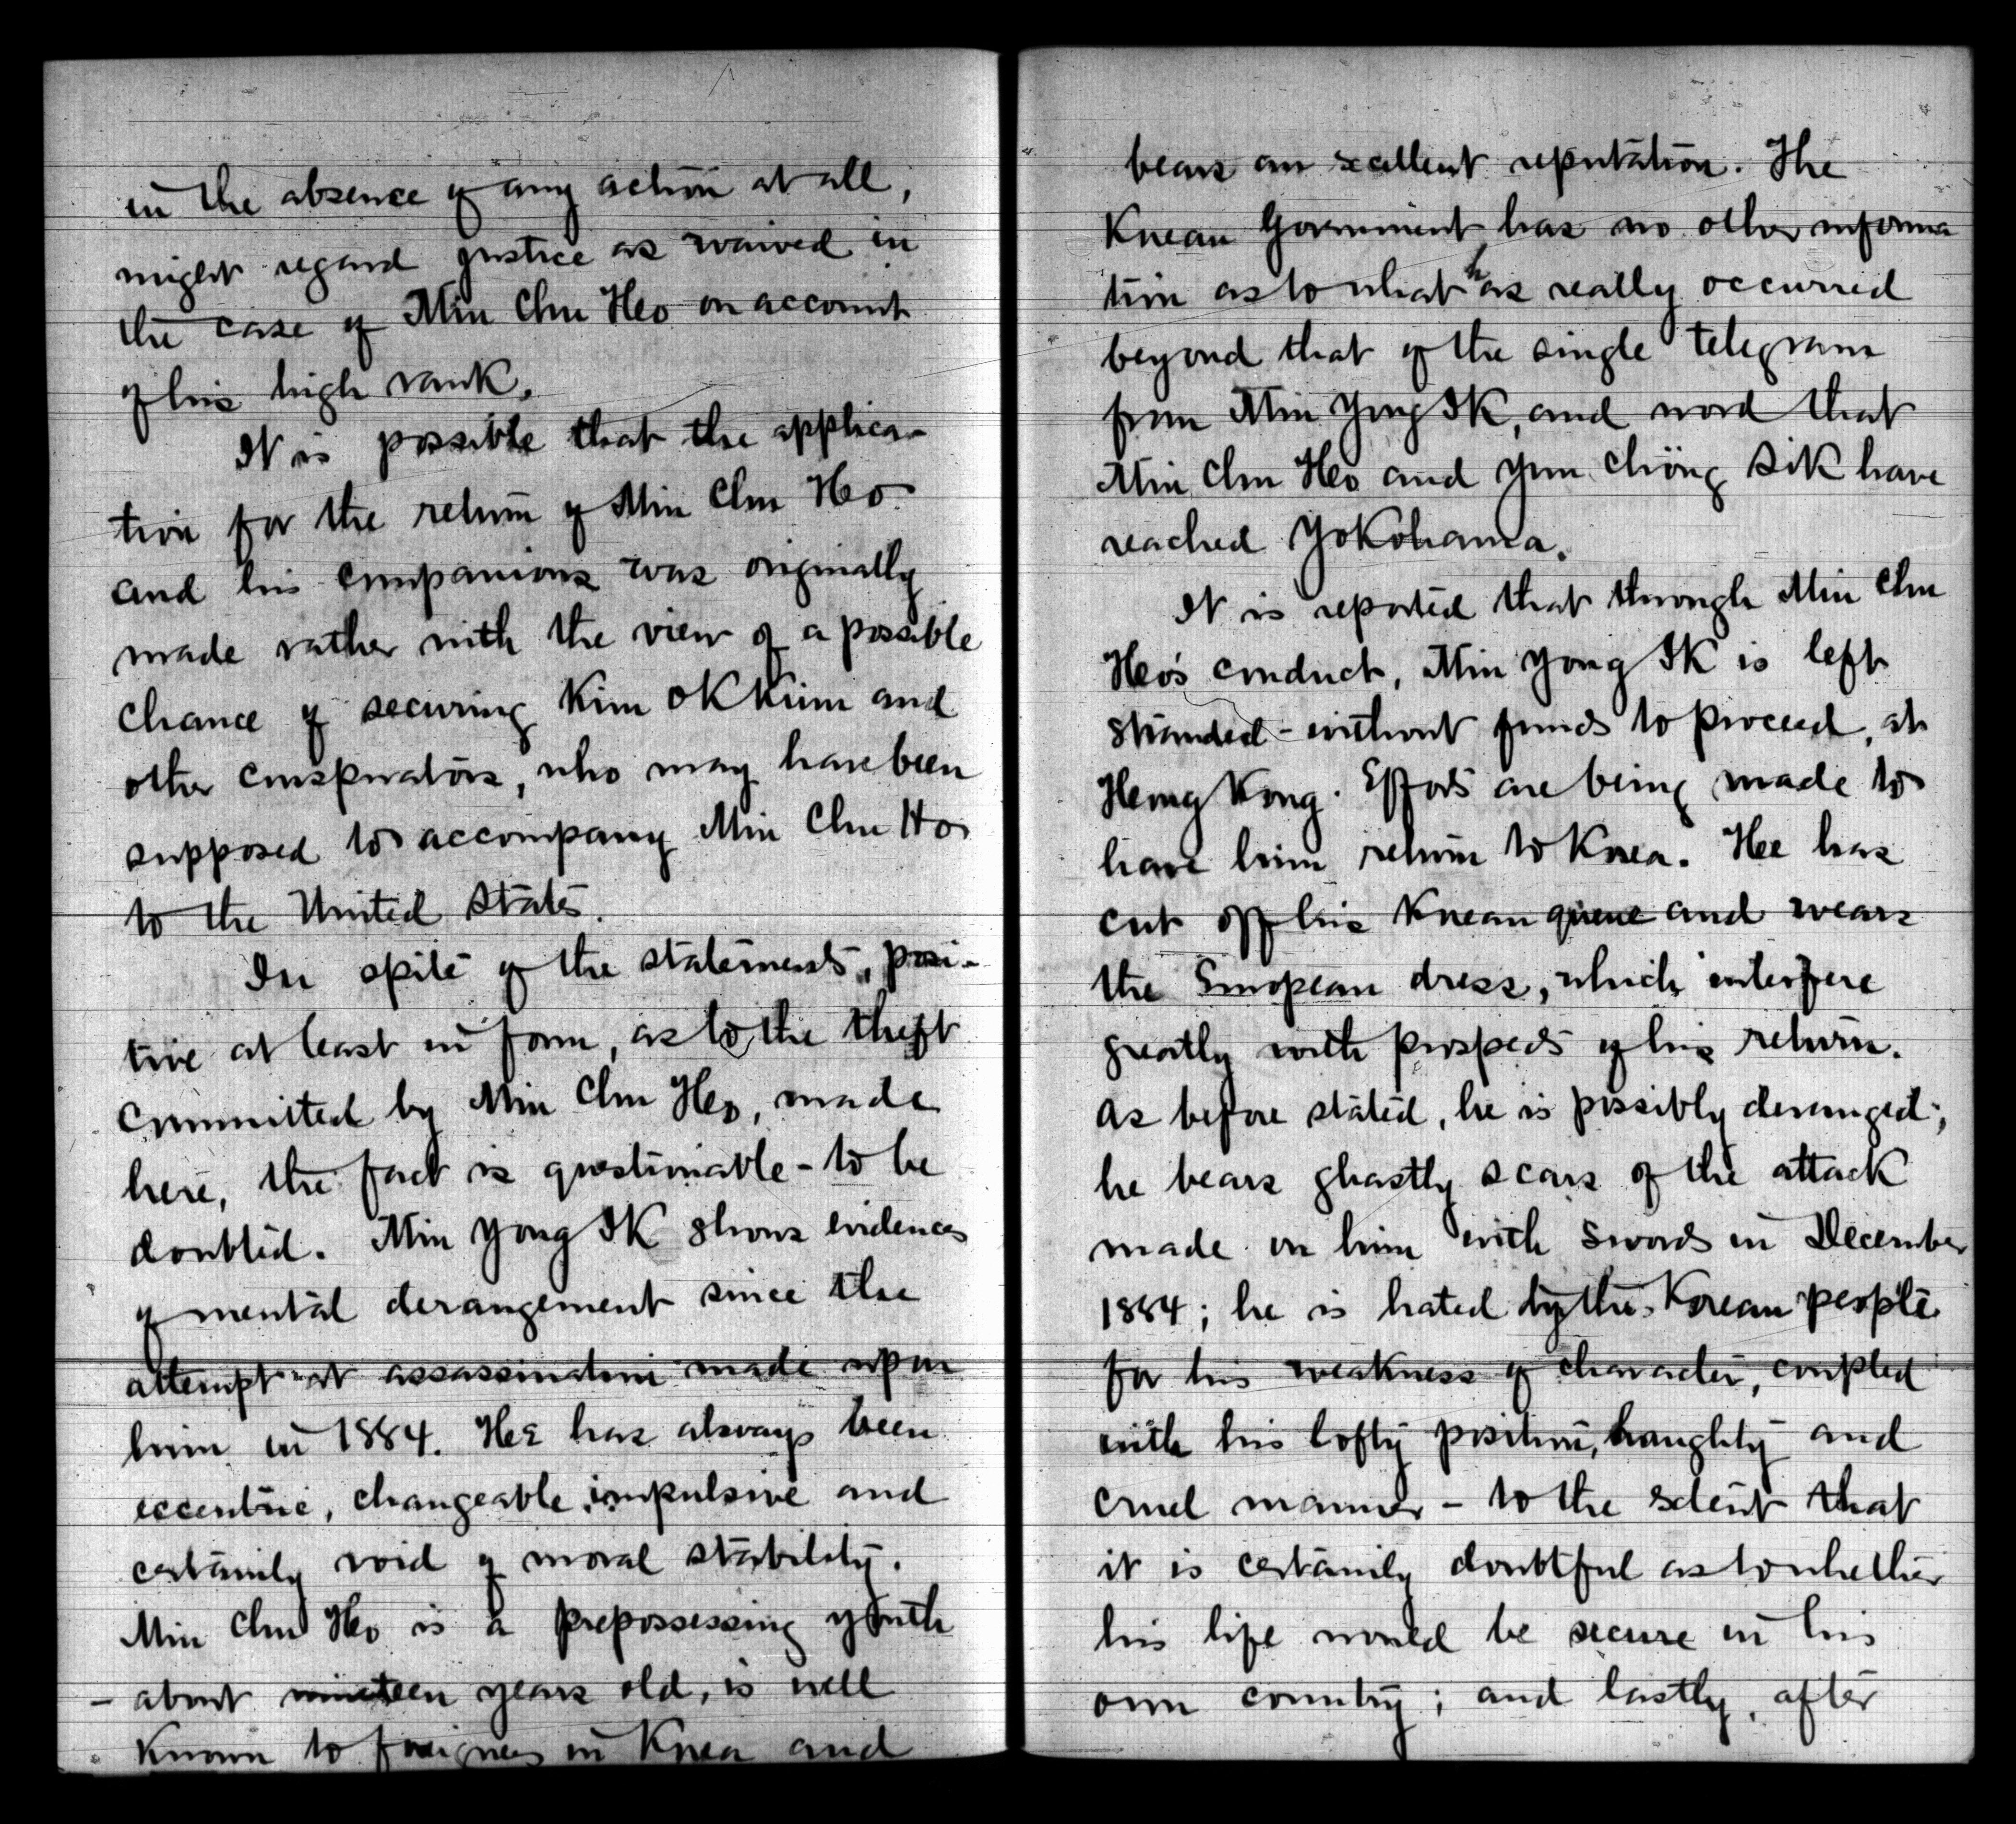 in the absence of any action at all,
might regard justice as waived in
the case of Min Chu Ho on account
of his high rank.
It is possible that the applica-
tion for the return of Min Chu Ho
and his companions was originally
made rather with the view of a possible
chance of securing Kim Ok Kiun and
other conspirators, who may have been
supposed to accompany Min Chu Ho
to the United States.
In spite of the statements, posi-
tive at least in form, as to the theft
committed by Min Chu Ho, made
here, the fact is questionable - to be
doubted. Min Yong Ik shows evidences
of mental derangement since the
attempt at assassination made upon
him in 1884. He has always been
eccentric, changeable, impulsive and
certainly void of moral stability.
Min Chu Ho is a prepossessing youth
- about nineteen years old, is well
known to foreigners in Korea and
bears an excellent reputation. The
Korean Government has no other informa
tion as to what has really occurred
beyond that of the single telegram
from Min Yong Ik, and word that
Min Chu Ho and Yun Chöng Sik have
reached Yokohama.
It is reported that through Min Chu
Ho's conduct, Min Yong Ik is left
stranded - without funds to proceed, at
Hong Kong. Efforts are being made to
have him return to Korea. He has
cut off his Korean queue and wears
the European dress, which interfere
greatly with prospects of his return.
As before stated, he is possibly deranged;
he bears ghastly scars of the attack
made on him with swords in December
1884; he is hated by the Korean people
for his weakness of character, coupled
with his lofty position, haughty and
cruel manner - to the extent that
it is certainly doubtful as to whether
his life would be secure in his
own country; and lastly, after